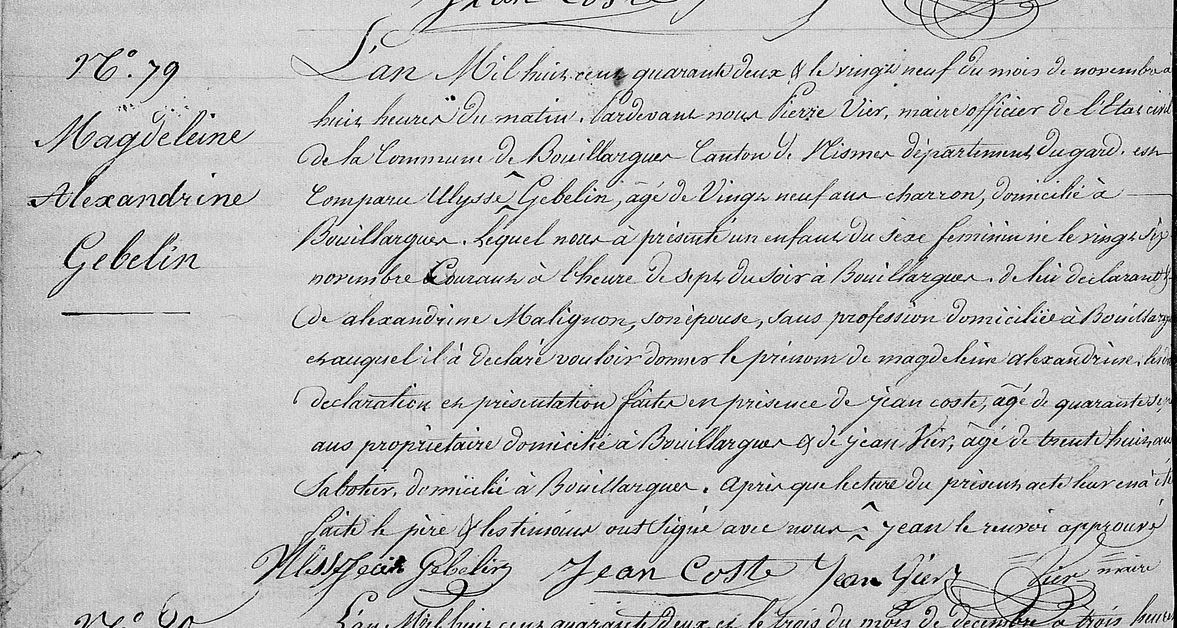 Jean Coste
N.º 79
Magdeleine
Alexandrine
Gebelin
L'an Mil huit cent quarante deux & le vingt neuf du mois de novembre à
huit heures du matin. Pardevant nous Pierre Vier, maire officier de l'Etat civil
de la Commune de Bouillargues Canton de Nismes département du gard. est
Comparu Ulysse ^ Gebelin, âgé de Vingt neuf ans charron, domicilié à
Bouillargues. Lequel nous à présenté un enfant du sexe feminin né le vingt six
novembre Courant à l'heure de sept du soir à Bouillargues. de lui déclarant &
de alexandrine Malignon, son épouse, sans profession domiciliée à Bouillargues
et auquel il à déclaré vouloir donner le prénom de magdeleine alexandrine.
déclaration et présentation faites en présence de jean coste, âgé de quarante
ans propriétaire domicilié à Bouillargues & de jean Vier, âgé de trente huit ans
Sabotier, domicilié à Bouillargues. Après que lecture du présent acte leur en à été
faite le père & les témoins ont signé avec nous ^ jean le renvoi approuvé
Ulisse Jean Gebelin Jean Coste Jean Vier Vier maire
N.º 80
L'an Mil huit cent quarante deux et le trois du mois de décembre à trois heures